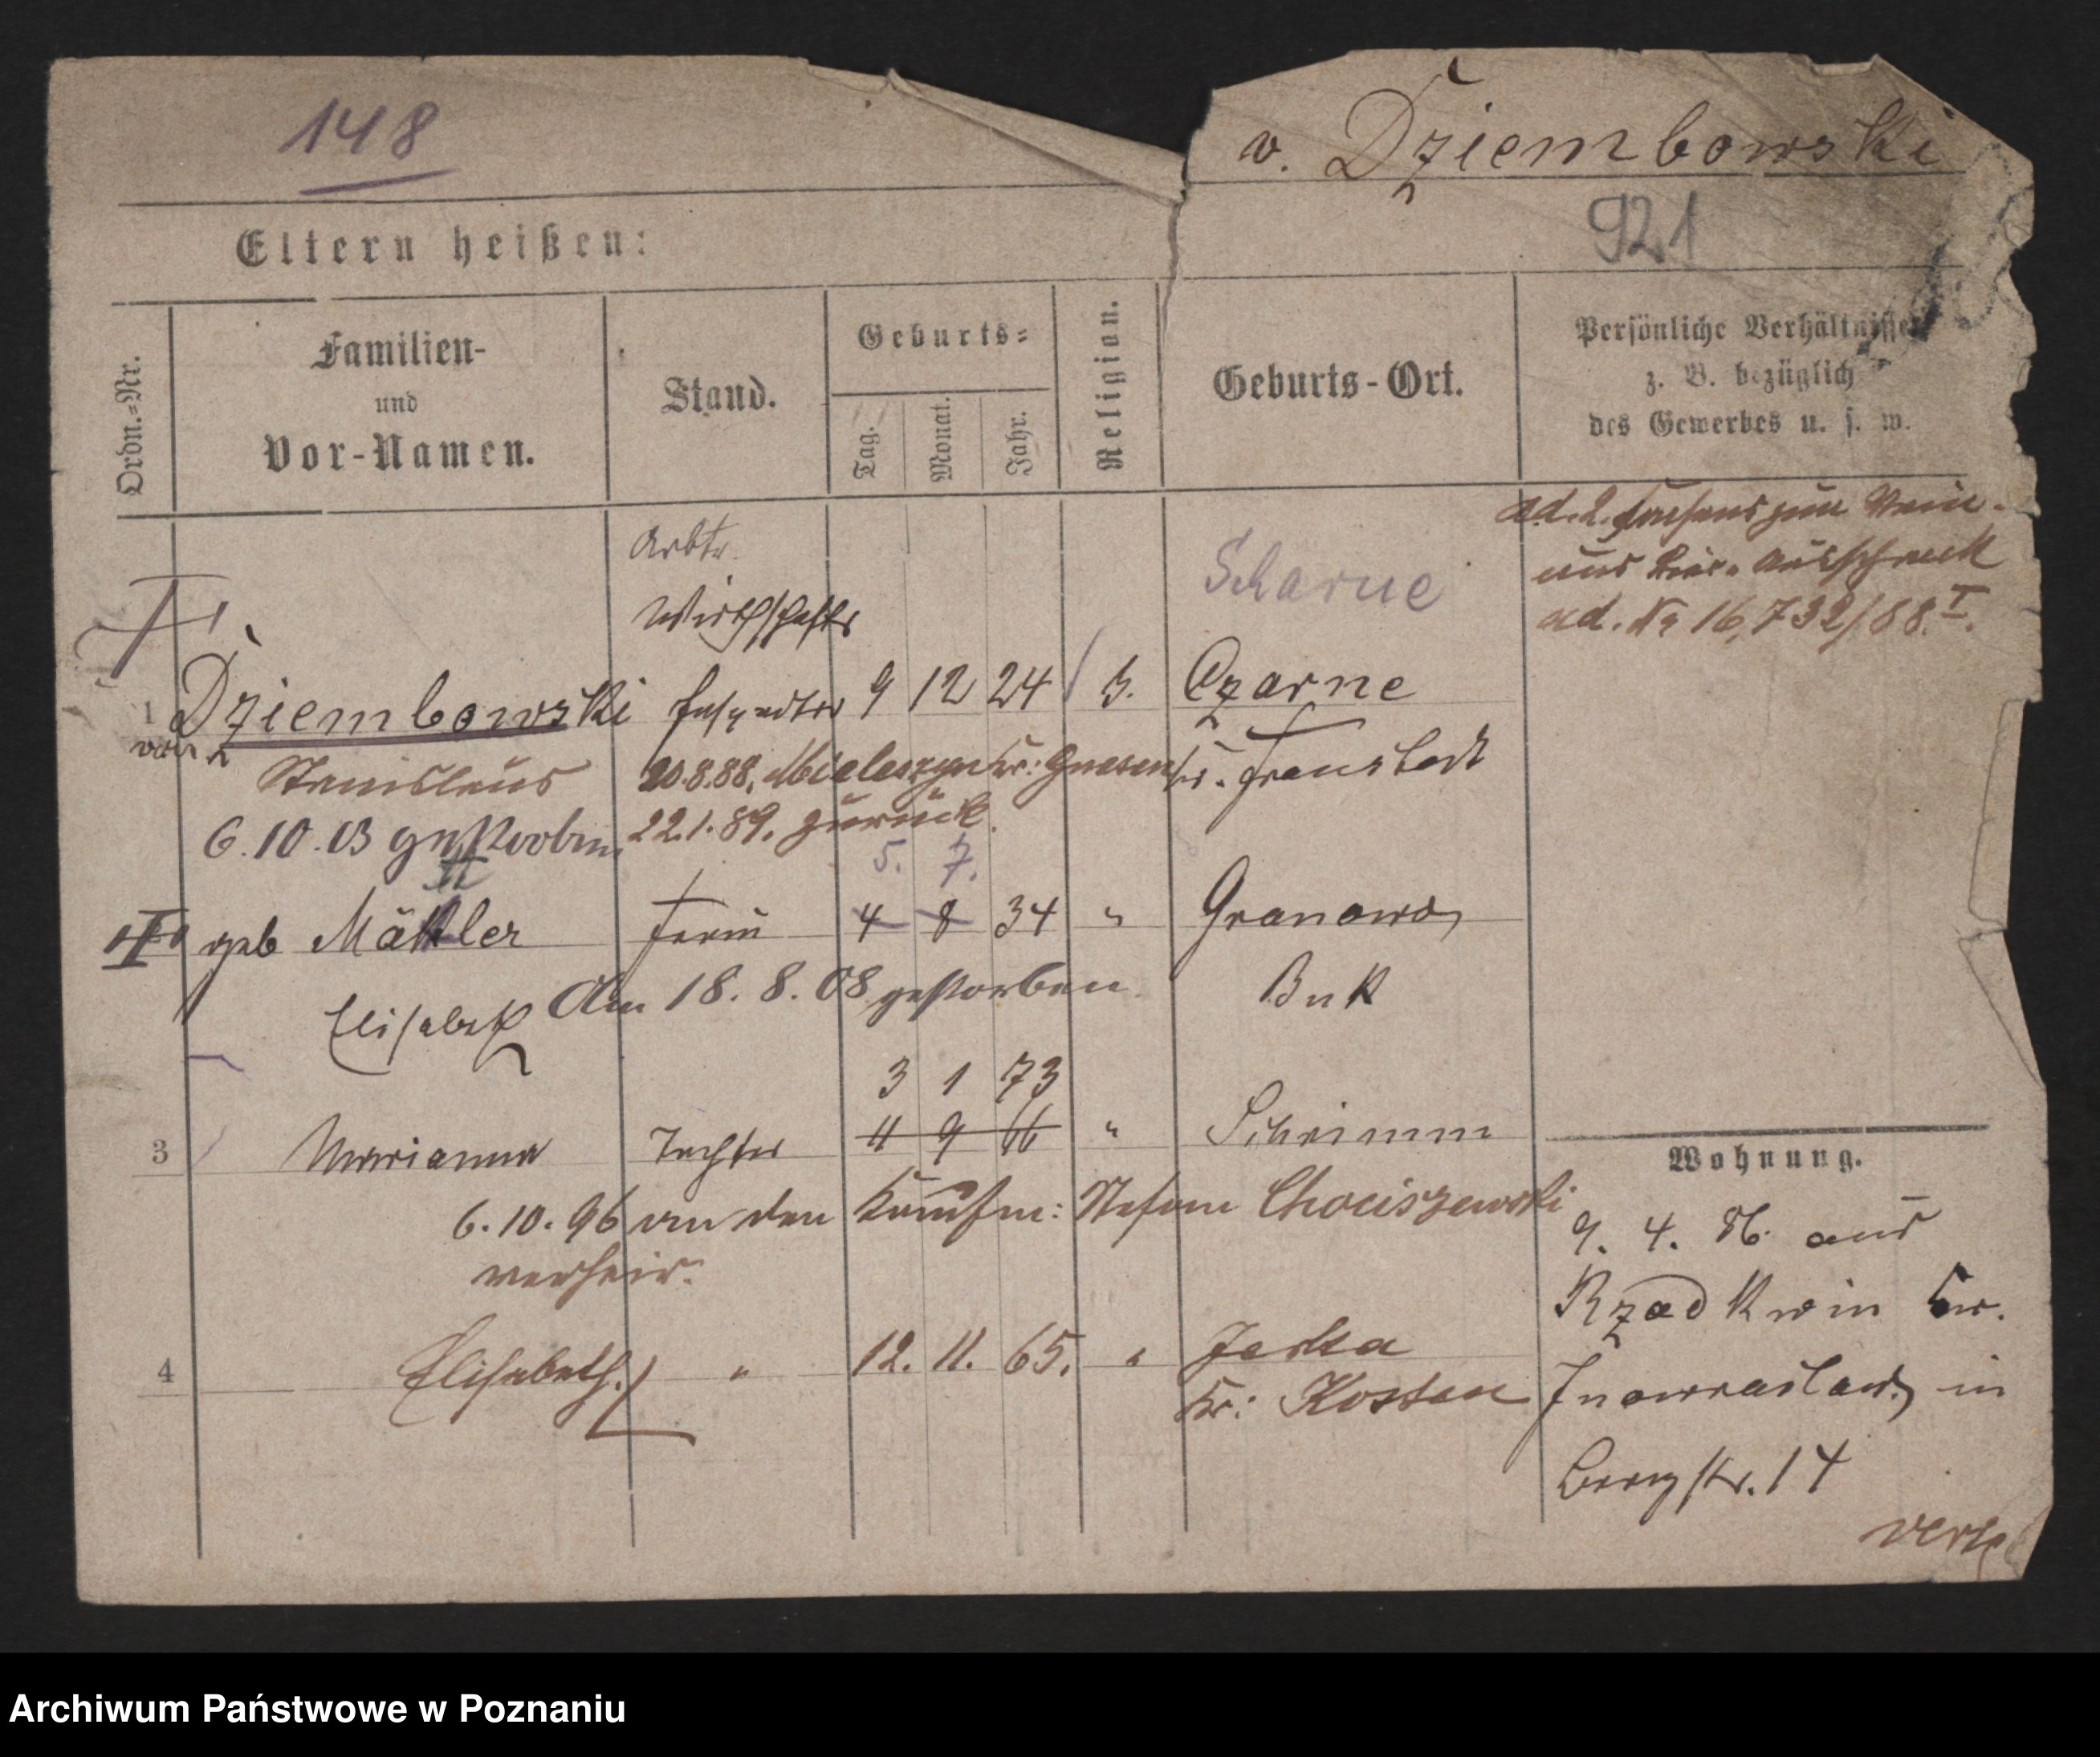 148
v. Dziembowski
921
Eltern heißen:
Ordn.=Nr.
Familien-
und
Vor-Namen.
Stand.
Geburts=
Tag.
Monat.
Jahr.
Religion.
Geburts-Ort.
Persönliche Verhältnisse
z. B. bezüglich
des Gewerbes u. s. w.
ad. 2. zum Wein-
und Bier-Ausschank
ad. No 16,732/88 I.
Arbtr.
Wirthschafts
Scharne
1 Dziembowski Inspector 9 12 24 Czarne
von
Stanislaus 20.8.88. Mieleszyn Kr: Gnesen Kr. Fraustadt
6.10.03 gestorben 22.1.89. zurück.
5. 7.
II
geb Mäkler Frau 4 8 34 " Granowo,
Am 18. 8. 08 gestorben. Buk
Elisabeth
3 1 73
3 Marianna Tochter 11 9 66 " Schrimm
6. 10. 96 an den Kaufm: Stefan Chociszewski
verheir.
4 Elisabeth. " 12. 11. 65. " Jerka
Kr: Kosten
Wohnung.
9. 4. 86. aus
Rzadkwin Kr.
Inowraclaw, in
Bergstr. 14